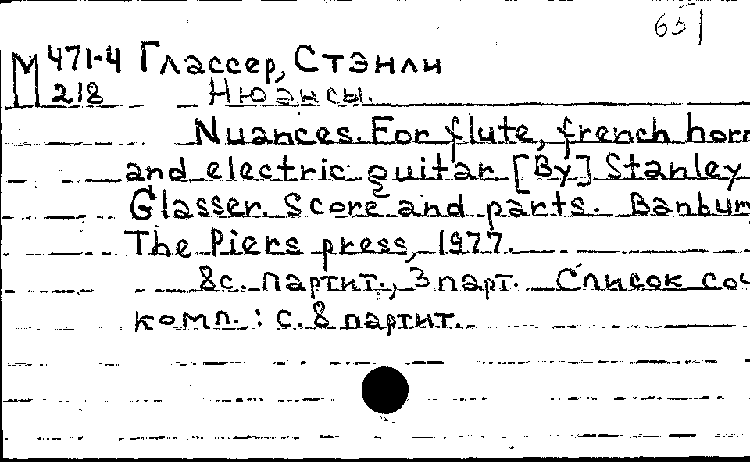 651
М 471-4 Глассер, Стэнли
218 Нюансы.
Nuances. For flute, french horn
and electric guitar [By] Stanley
Glasser. Score and parts. Banbur
The Piers press, 1977.
8с. партит., 3 парт. Список соч
комп.: с. 8 партит.